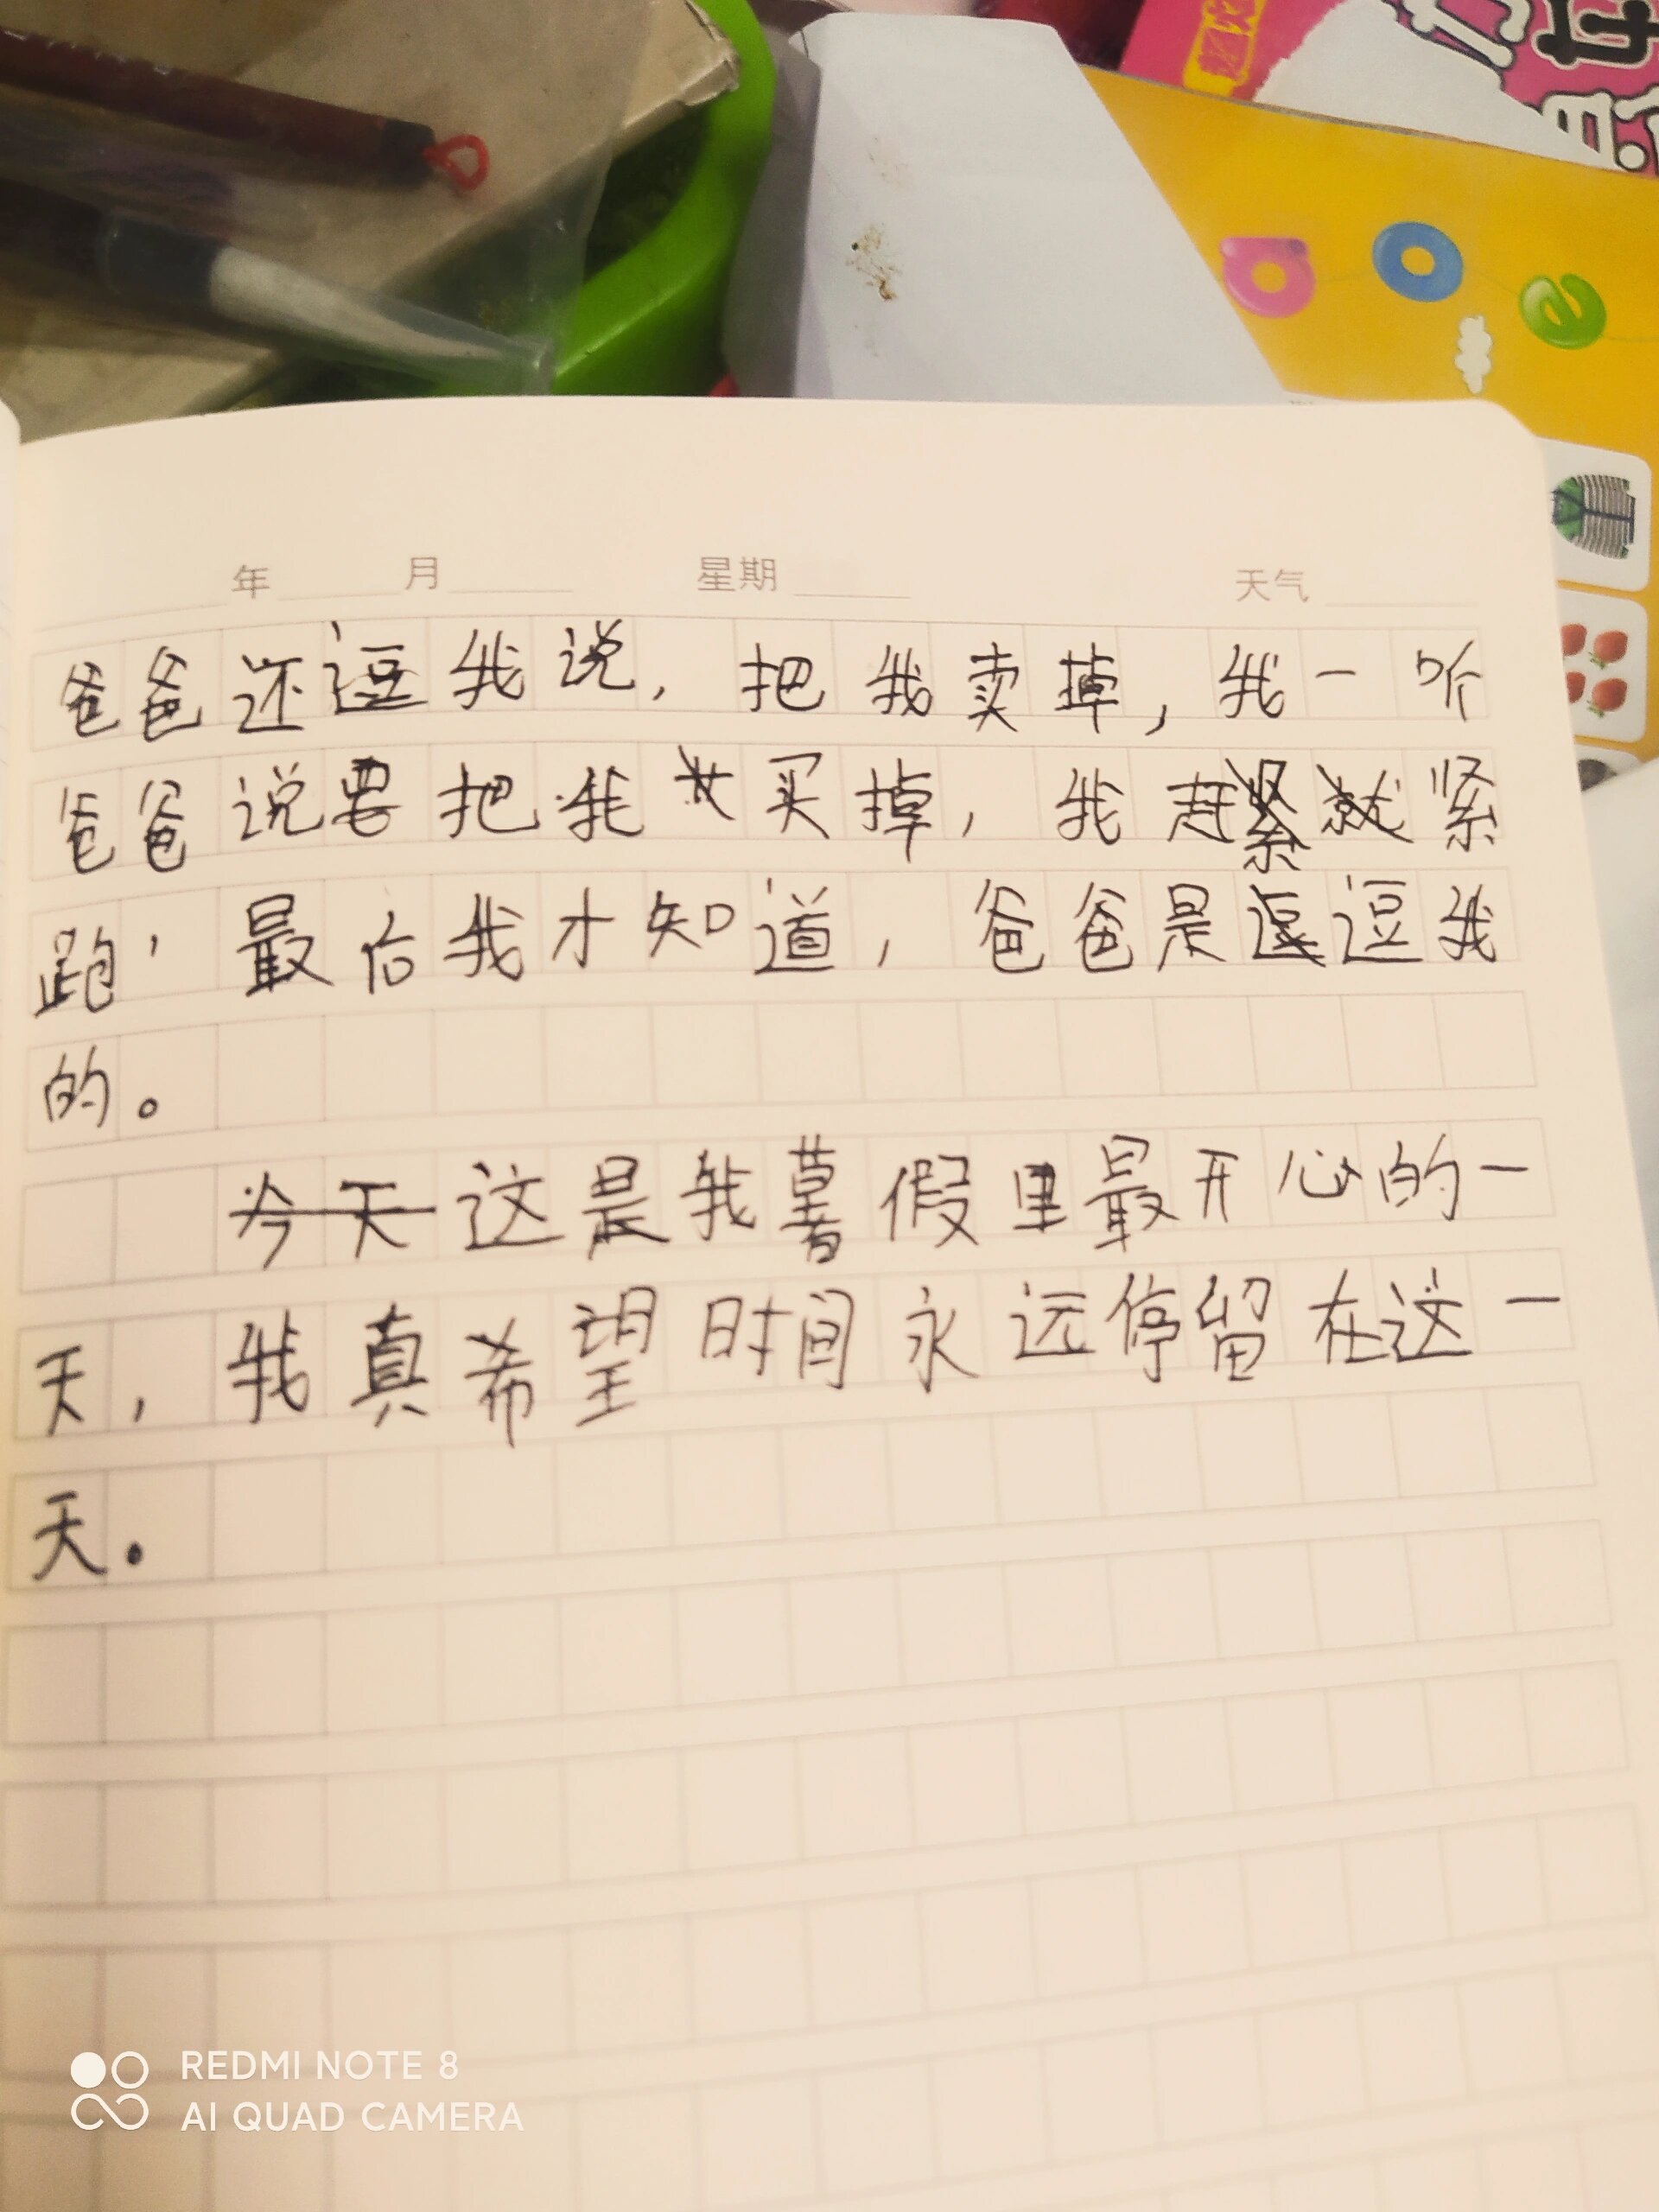 年 月 星期 天气
爸爸还逗我说，把我卖掉，我一听
爸爸说要把我买掉，我赶紧
跑，最后我才知道，爸爸是逗我
的。
这是我暑假里最开心的一
天，我真希望时间永远停留在这一
天。
a o e
REDMI NOTE 8
AI QUAD CAMERA